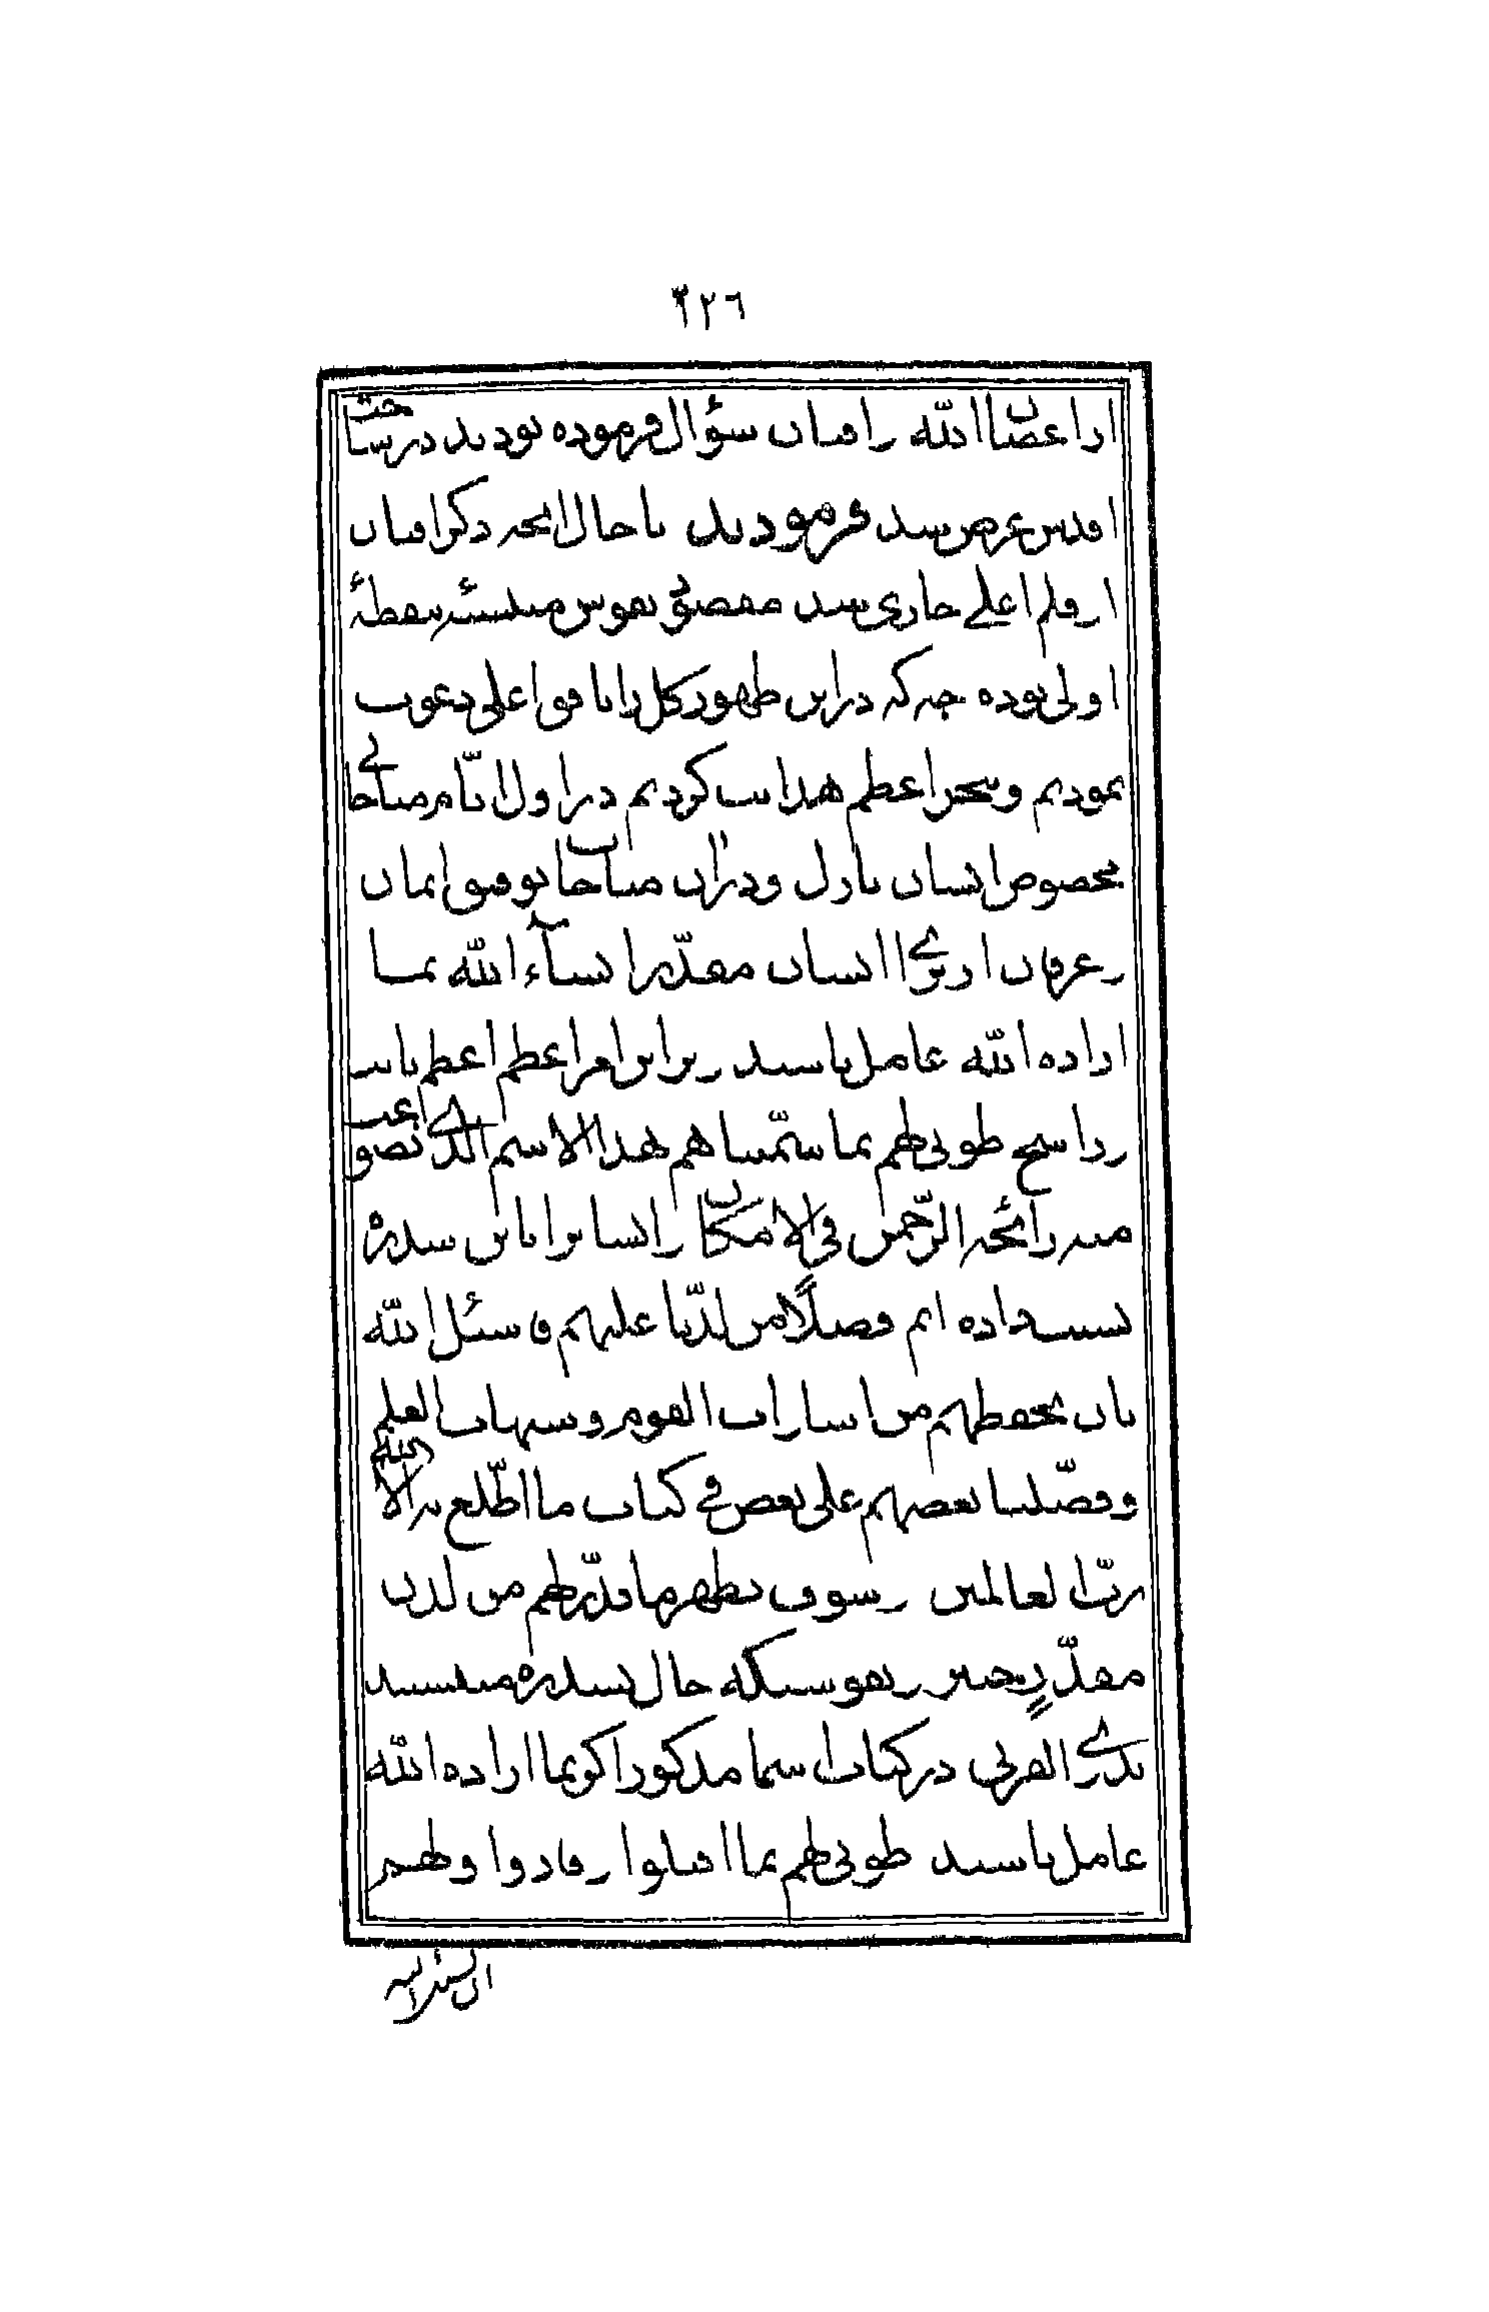 ٣٢٦
از اغصان الله و افنان سؤال فرموده بودید در ساحت
اقدس عرض شد فرمودند تا حال آنچه ذکر افنان
از قلم اعلی جاری شد مقصود نفوس منتسبه بنقطهٔ
اولی بوده چه که در این ظهور کل را بافق اعلی دعوت
نمودیم و ببحر اعظم هدایت کردیم در اول ایام مناجاتی
مخصوص ایشان نازل و در آن مناجات توفیق ایمان
و عرفان از برای ایشان مقدر انشآءالله بما
اراده الله عامل باشند و بر این امر اعظم اعظم ثابت
و راسخ طوبی لهم بما سمّیناهم بهذا الاسم الذی تضوّعت
منه رائحة الرّحمن فی الامکان و ایشانرا باین سدره
نسبت داده‌ایم فضلاً من لدنّا علیهم فاسئل الله
بان یحفظهم من اشارات القوم و شبهات العلمآء
و فضّلنا بعضهم علی بعض فی کتاب ما اطّلع به الا الله
ربّ العالمین و سوف یظهر ما قدّر لهم من لدن
مقدّرٍ خبیر و نفوسیکه حال بسدره منتسبند
بذی القربی در کتاب اسما مذکور اگر بما اراده الله
عامل باشند طوبی لهم بما اقبلوا و فازوا و لهم
ان یسئلوا الله